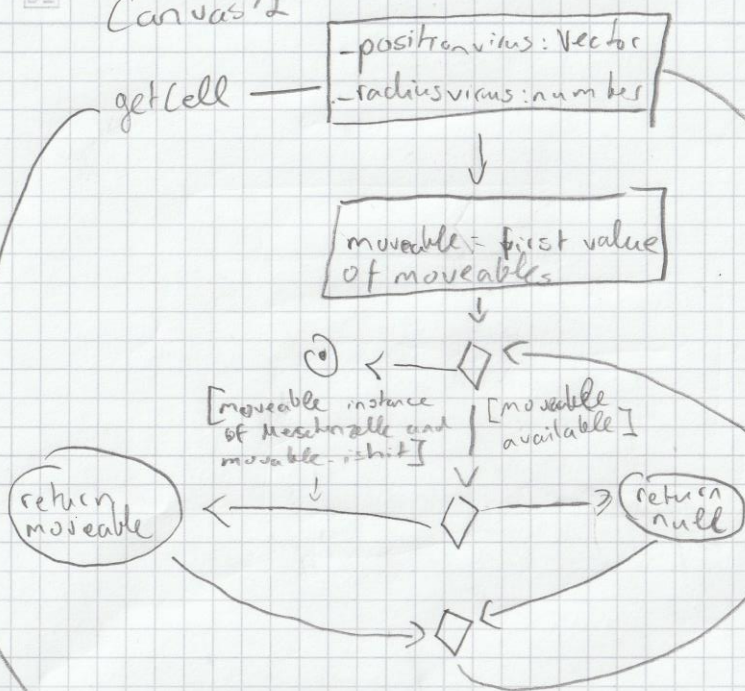 Canvas 2
getCell
-positionvirus: Vector
-radiusvirus:number
moveable = first value
of moveables
[moveable instance
of Meschzelle and
movable.ishit]
[moveable
available]
return
moveable
return
null